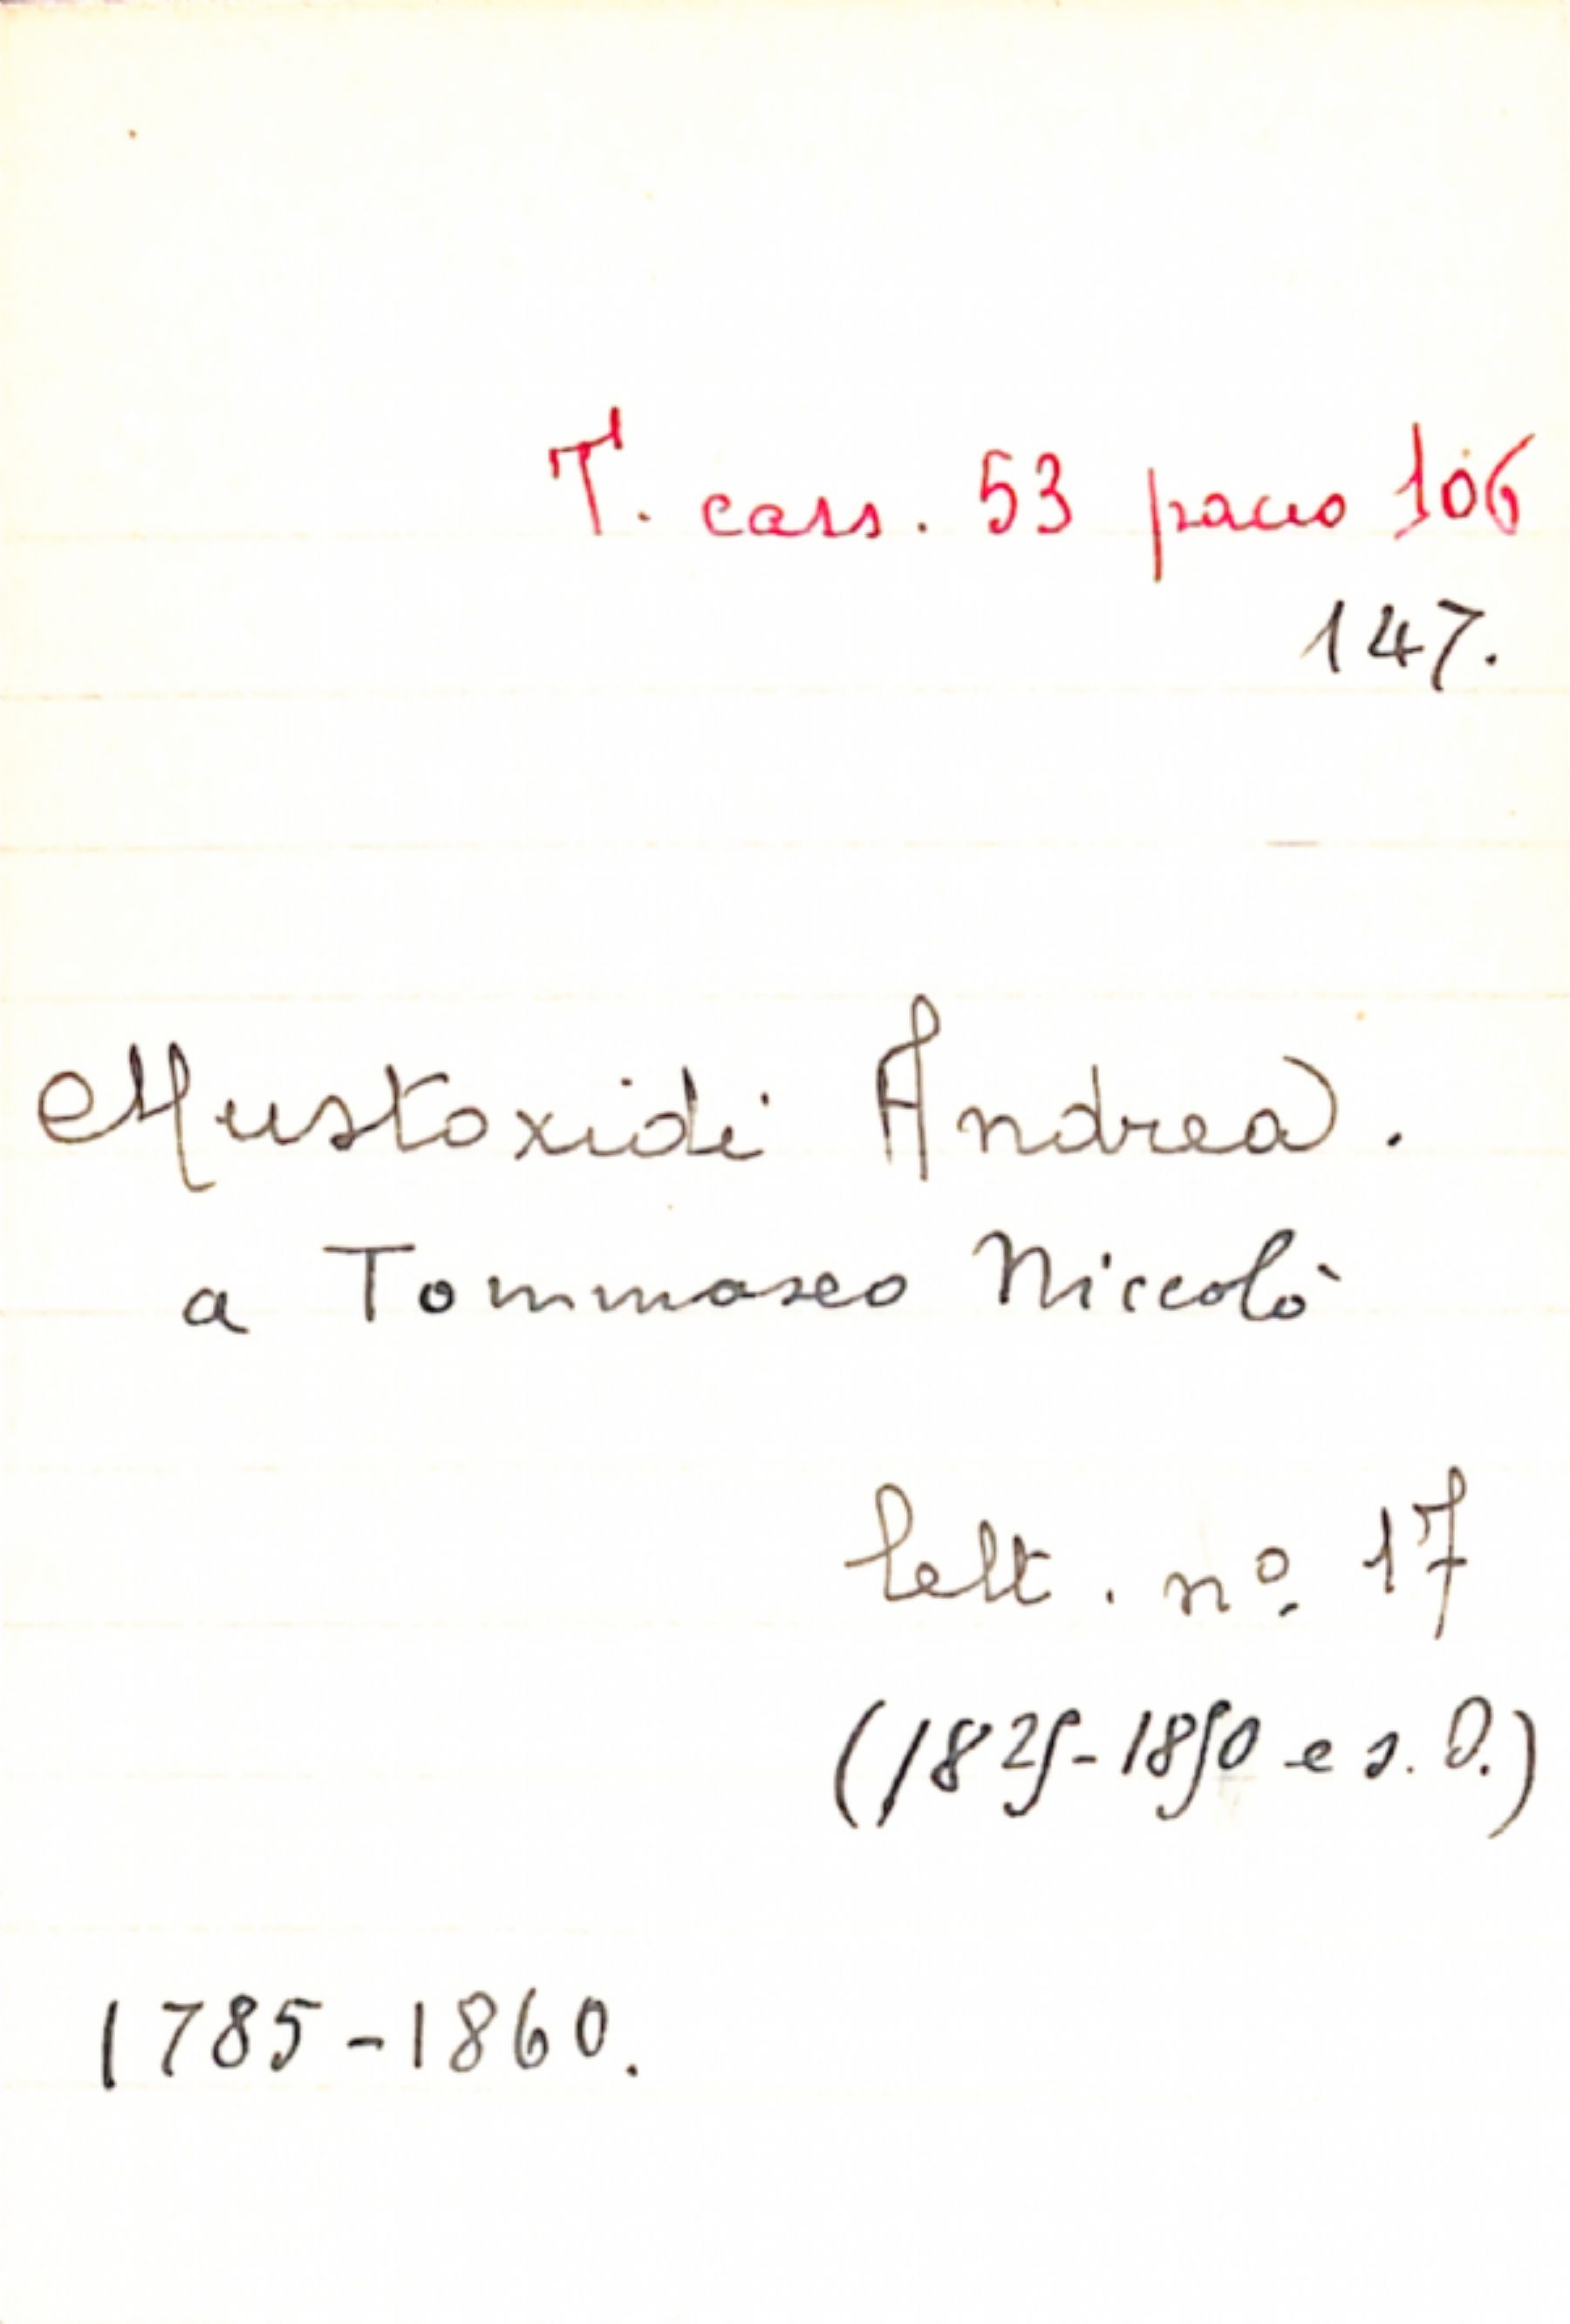 T. cass. 53 pacco 106
147.
Mustoxidi Andrea.
a Tommaseo Niccolò
lett. nº 17
(1825-1850 e s. D.)
1785-1860.